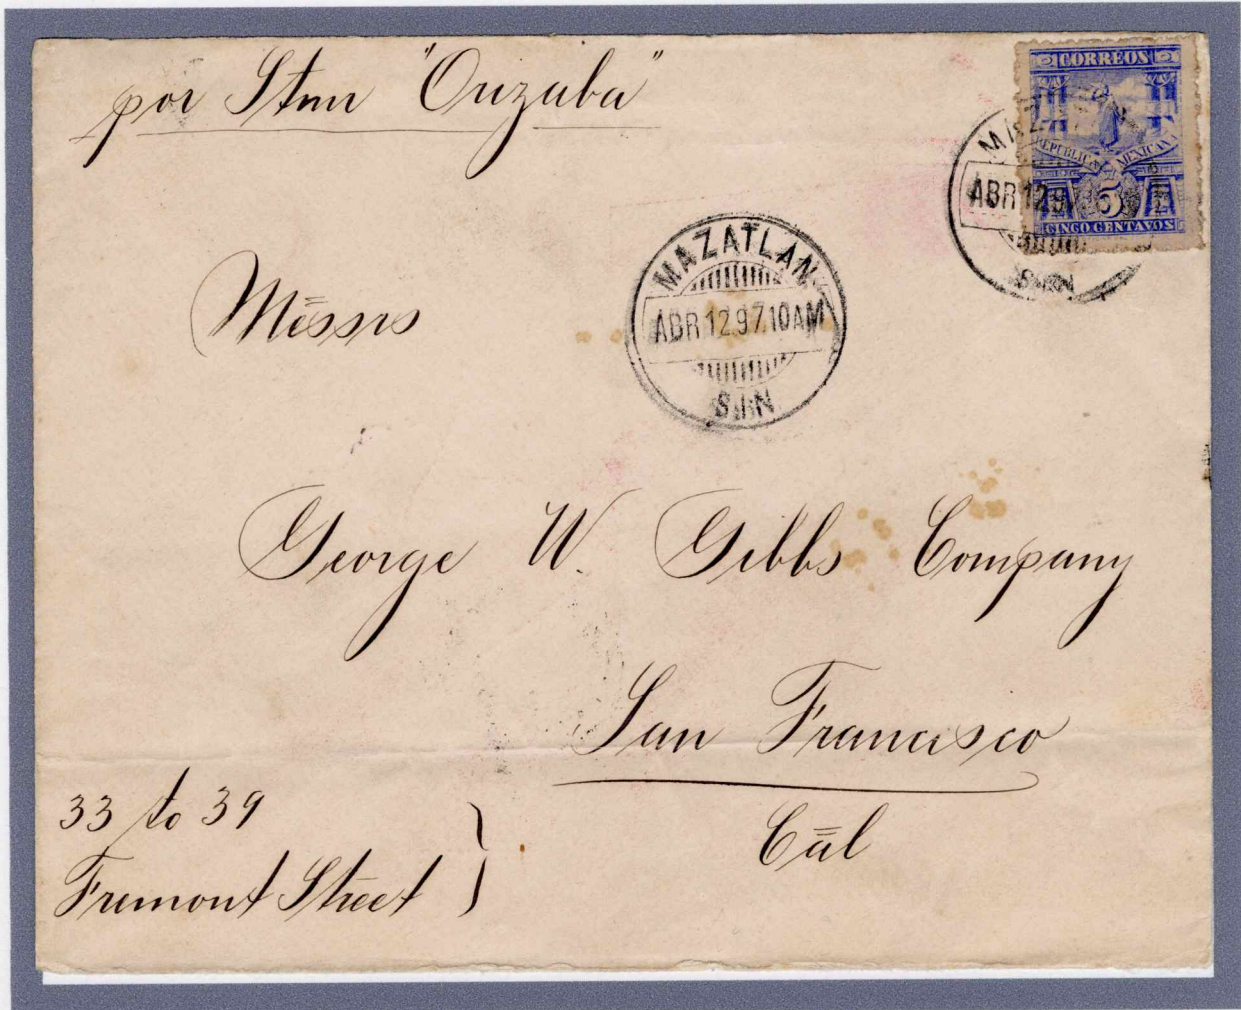 por Stmr "Orizaba"
CORREOS
REPUBLICA MEXICANA
5
CINCO CENTAVOS
ABR 12 97
SIN
MAZATLAN
ABR 12 97 10 AM
SIN
Messrs
George W. Gibbs Company
San Francisco
Cal
33 to 39
Fremont Street